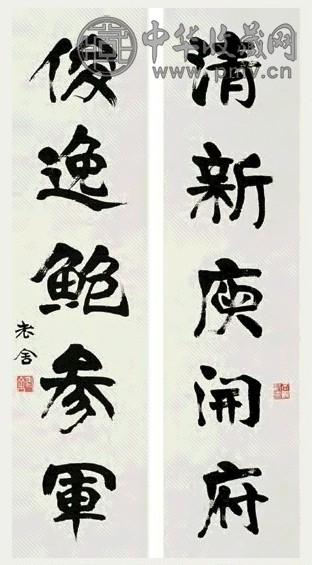 清新庾開府
俊逸鲍参軍
老舍
中华收藏网
www.pmv.cn